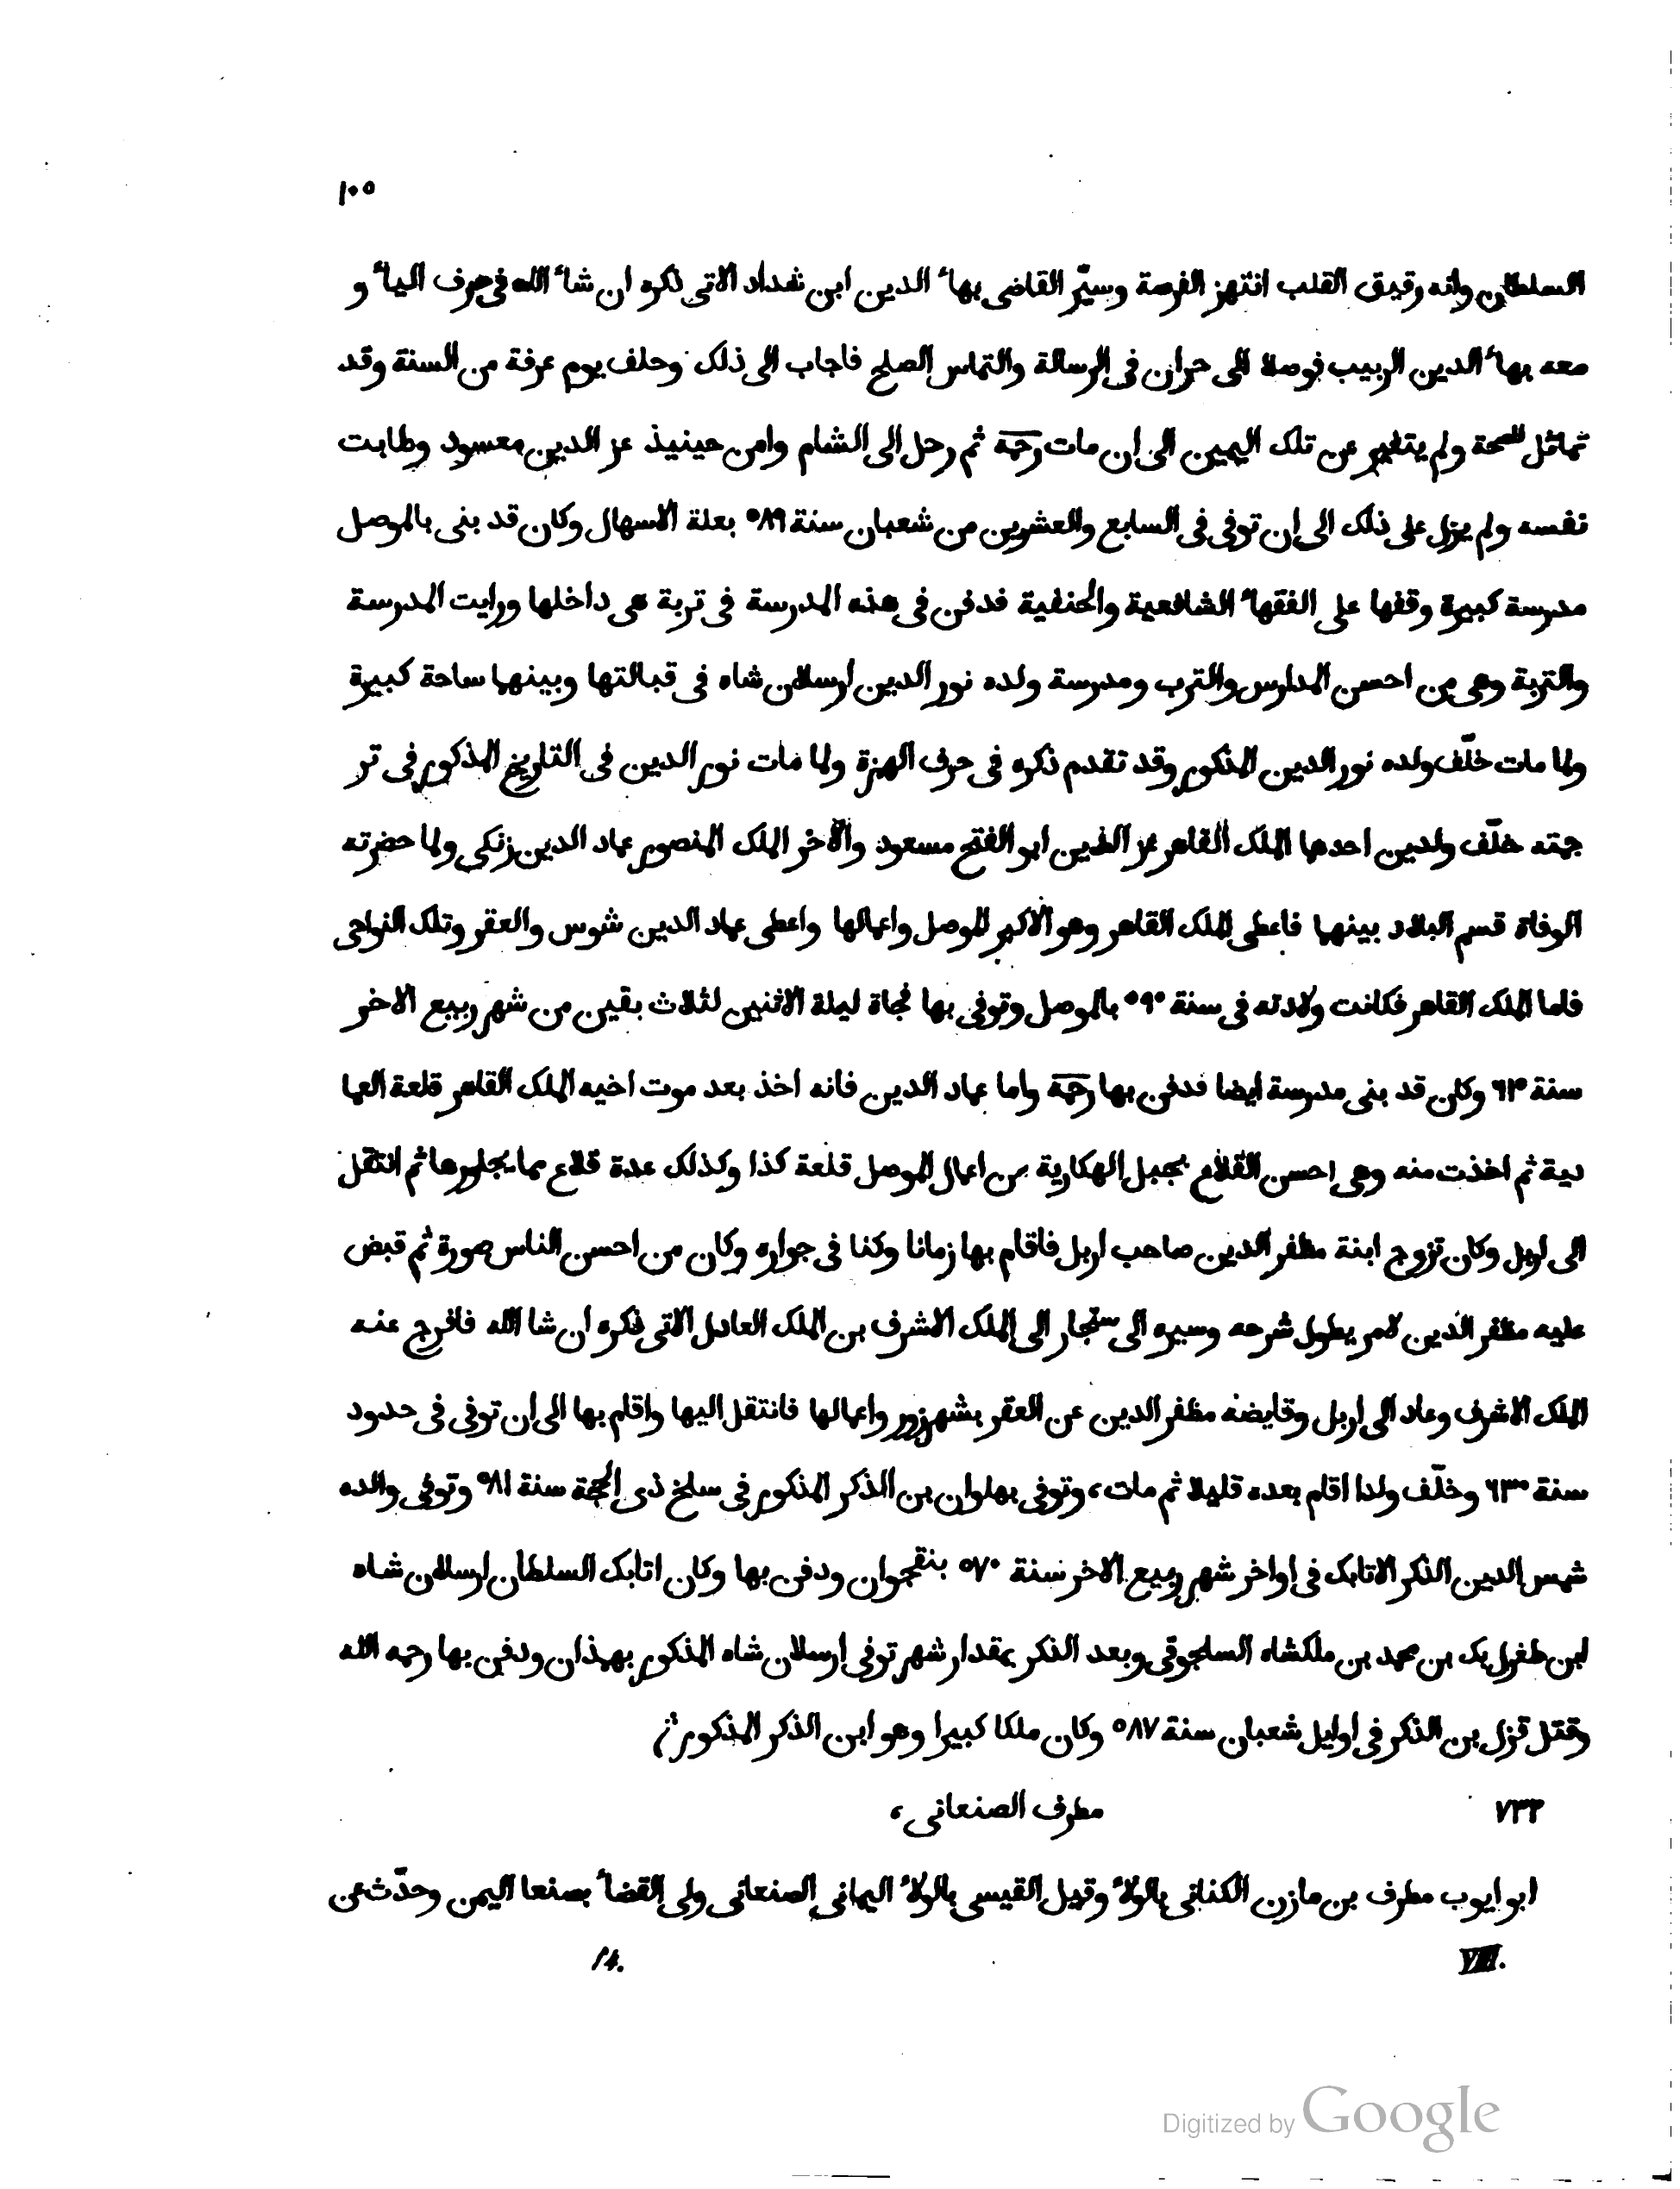 ١٠٥
السلطان وانه رقيق القلب انتهز الفرصة وسيّر القاضى بهاء الدين ابن شداد الاتى ذكره ان شاء الله فى حرف الياء و
معه بهاء الدين الربيب فوصلا الى حران فى الرسالة والتماس الصلح فاجاب الى ذلك وحلف يوم عرفة من السنة وقد
تماثل للصحة ولم يتغير عن تلك اليمين الى ان مات رحمه ثم رحل الى الشام وامن حينيذ عز الدين مسعود وطابت
نفسه ولم يزل على ذلك الى ان توفى فى السابع والعشرين من شعبان سنة ٥٨٩ بعلة الاسهال وكان قد بنى بالموصل
مدرسة كبيرة وقفها على الفقهاء الشافعية والحنفية فدفن فى هذه المدرسة فى تربة هى داخلها ورايت المدرسة
والتربة وهى من احسن المدارس والترب ومدرسة ولده نور الدين ارسلان شاه فى قبالتها وبينهما ساحة كبيرة
ولما مات خلّف ولده نور الدين المذكور وقد تقدم ذكره فى حرف الهمزة ولما مات نور الدين فى التاريخ المذكور فى تر
جمته خلّف ولدين احدهما الملك القاهر عز الدين ابو الفتح مسعود والآخر الملك المنصور عماد الدين زنكى ولما حضرته
الوفاة قسم البلاد بينهما فاعطى الملك القاهر وهو الاكبر الموصل واعمالها واعطى عماد الدين شوس والعقر وتلك النواحى
فاما الملك القاهر فكانت ولادته فى سنة ٥٩٠ بالموصل وتوفى بها فجاة ليلة الاثنين لثلاث بقين من شهر ربيع الاخر
سنة وكان قد بنى مدرسة ايضا فدفن بها رحمه واما عماد الدين فانه اخذ بعد موت اخيه الملك القاهر قلعة العما
دية ثم اخذت منه وهى احسن القلاع بجبل الهكارية من اعمال الموصل قلعة كذا وكذلك عدة قلاع مما يجاورها ثم انتقل
الى اربل وكان تزوج ابنة مظفر الدين صاحب اربل فاقام بها زمانا وكنا فى جواره وكان من احسن الناس صورة ثم قبض
عليه مظفر الدين لامر يطول شرحه وسيره الى سنجار الى الملك الاشرف بن الملك العادل الاتى ذكره ان شا الله فافرج عنه
الملك الاشرف وعاد الى اربل وقايضه مظفر الدين عن العقر بشهرزور واعمالها فانتقل اليها واقام بها الى ان توفى فى حدود
سنة ٦٣٠ وخلّف ولدا اقام بعده قليلا ثم مات، وتوفى بهلوان بن الذكر المذكور فى سلخ ذى الحجة سنة ٥٨١ وتوفى والده
شمس الدين الذكر الاتابك فى اواخر شهر ربيع الاخر سنة ٥٧٠ بنقجوان ودفن بها وكان اتابك السلطان ارسلان شاه
ابن طغرل بك بن محمد بن ملكشاه السلجوقى وبعد الذكر بمقدار شهر توفى ارسلان شاه المذكور بهمذان ودفن بها رحمه الله
وقتل قزل بن الذكر فى اوايل شعبان سنة ٥٨٧ وكان ملكا كبيرا وهو ابن الذكر المذكور
٧٣٣ مطرف الصنعانى،
ابو ايوب مطرف بن مازن الكنانى بالولاء وقيل القيسى بالولاء اليمانى الصنعانى ولى القضاء بصنعا اليمن وحدّث عن
VIII. 14.
Digitized by Google